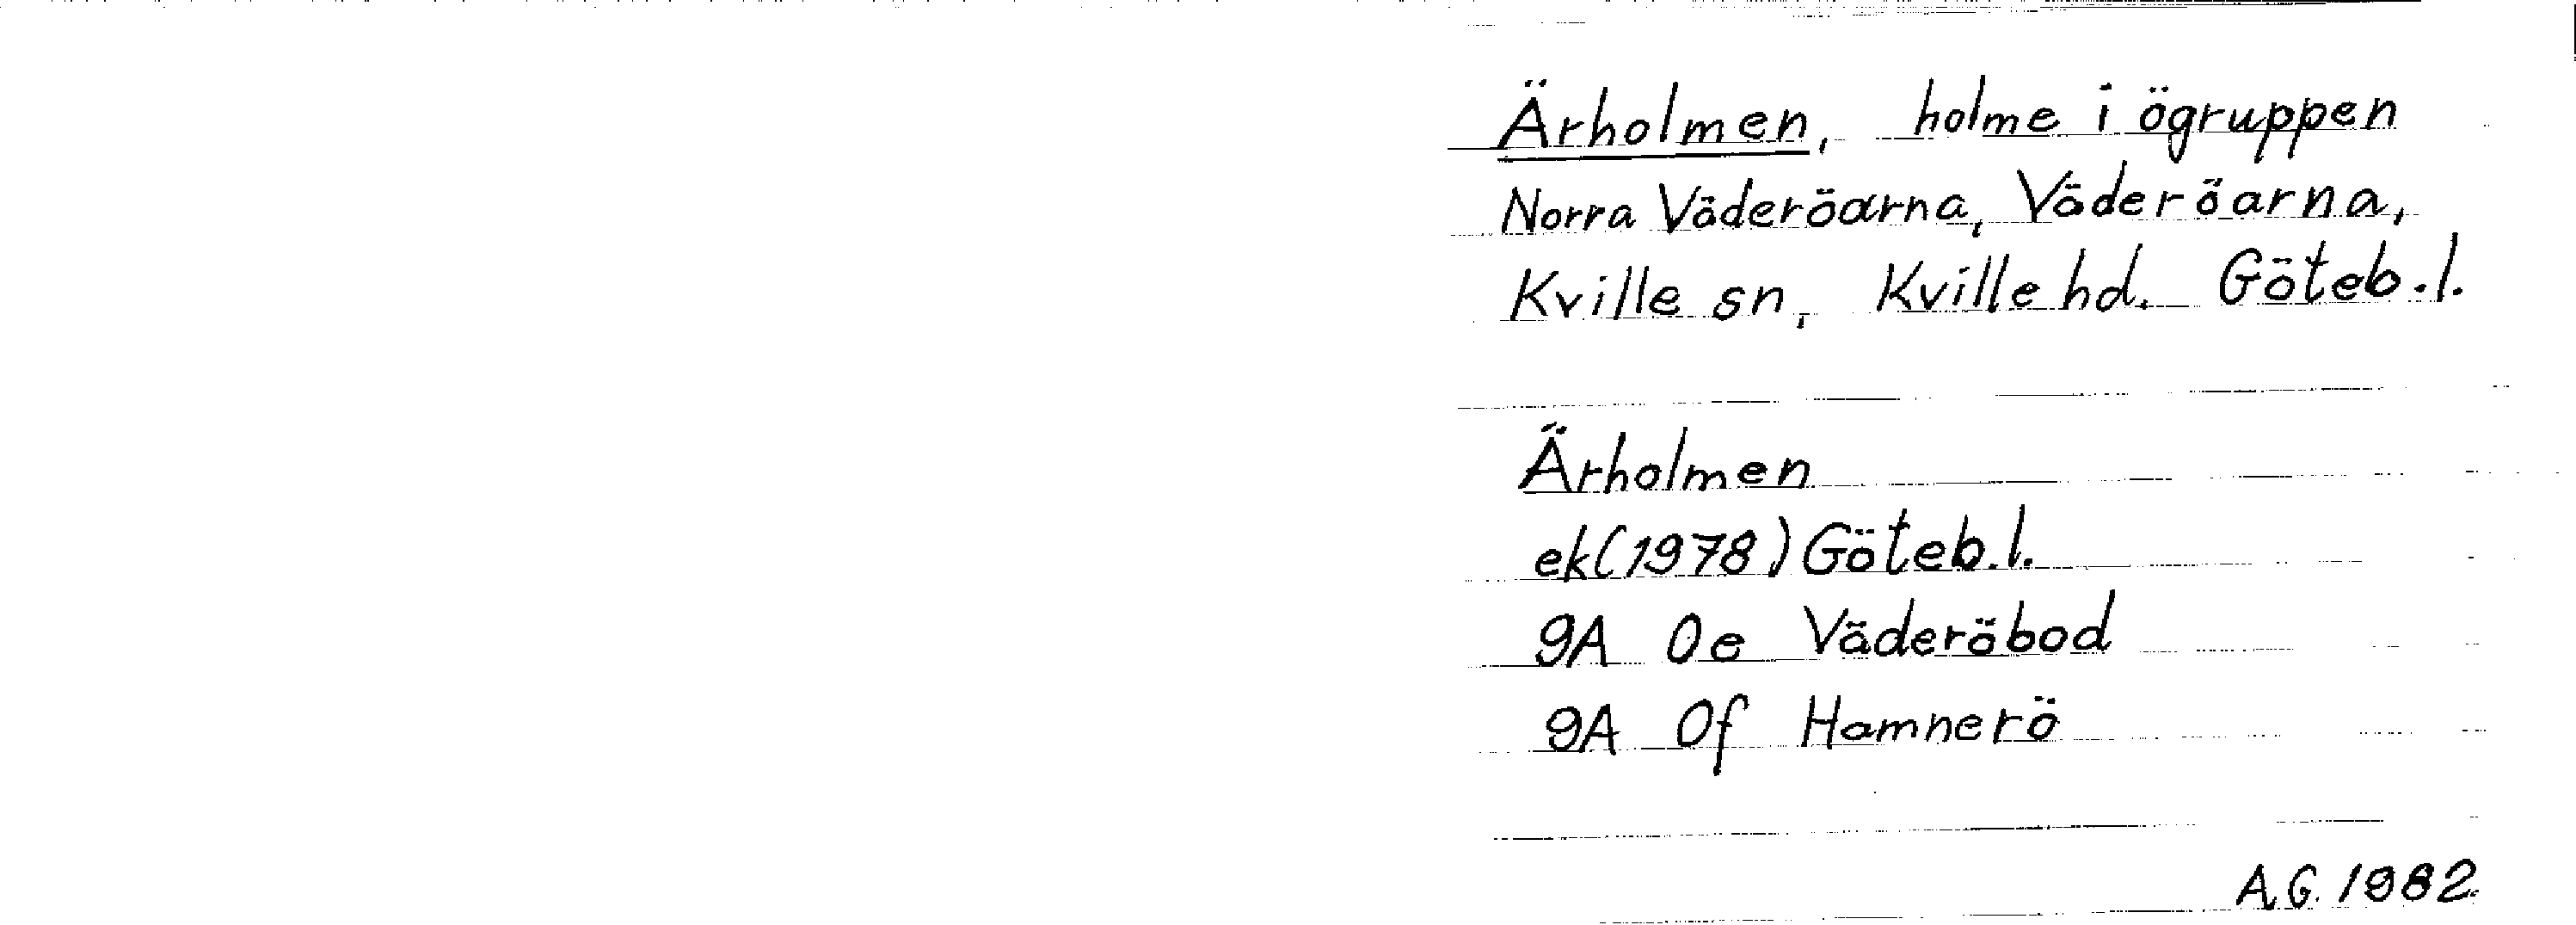 Ärholmen, holme i ögruppen
Norra Väderöarna, Väderöarna,
Kville sn, Kville hd. Göteb.l.
Ärholmen
ek(1978) Göteb.l.
9A 0e Väderöbod
9A 0f Hamnerö
A.G. 1982